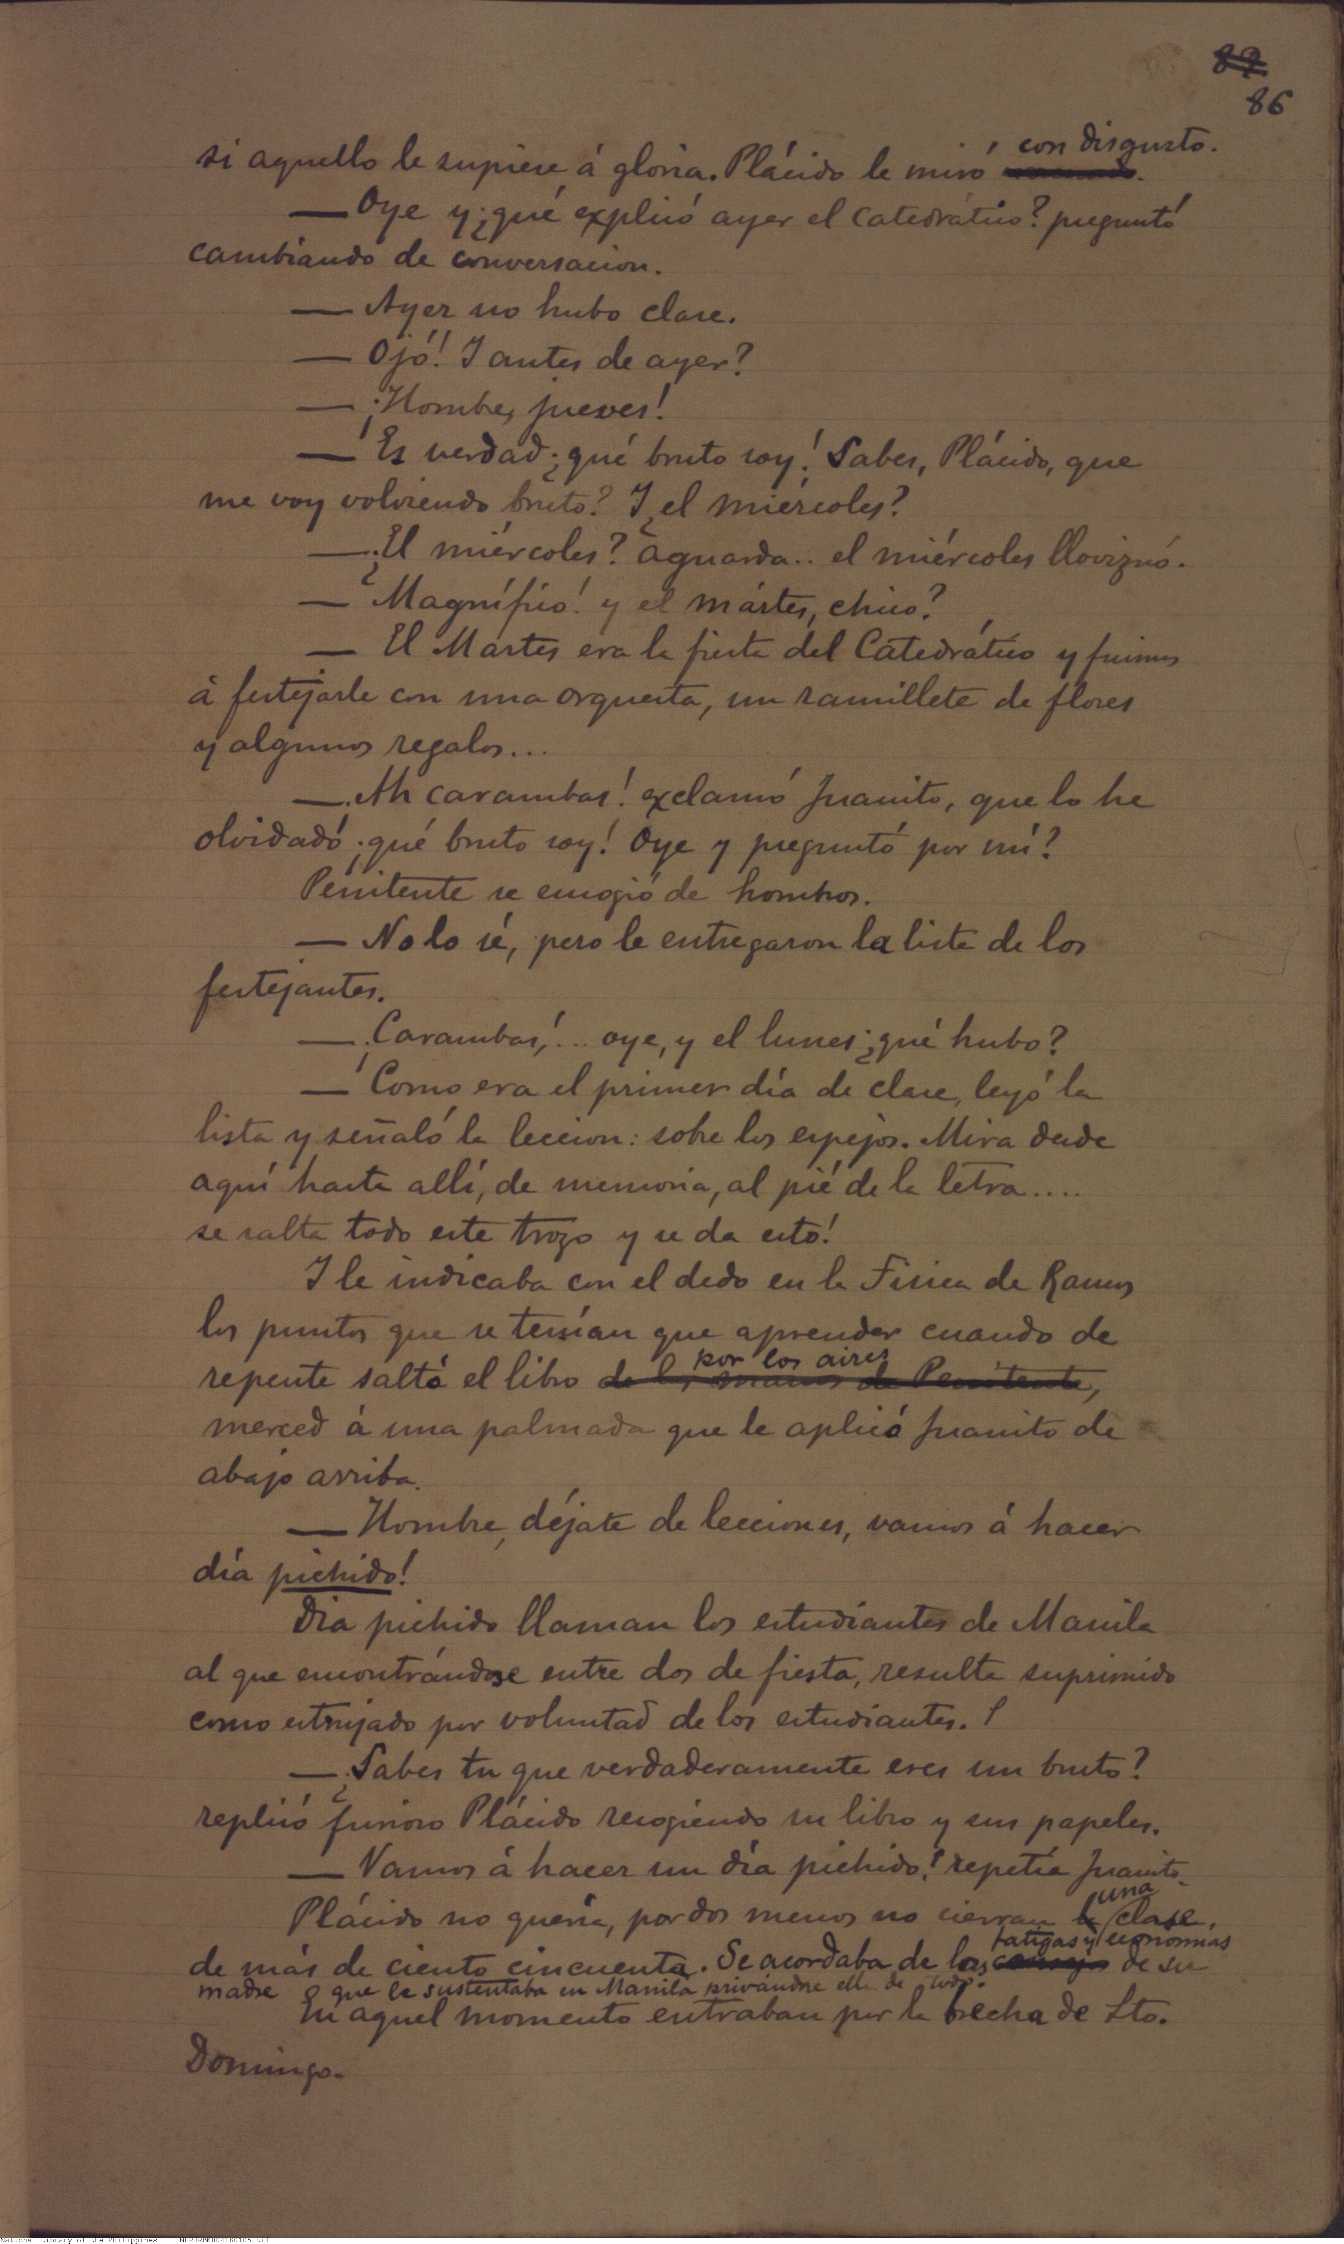 87
86
si aquello le supiese á gloria. Plácido le miró con disgusto.
— Oye y ¿qué explicó ayer el catedrático? preguntó
cambiando de conversacion.
— Ayer no hubo clase.
— Ojó! I antes de ayer?
— ¡Hombre, jueves!
— Es verdad ¡qué bruto soy! Sabes, Plácido, que
me voy volviendo bruto? I ¿el miércoles?
— ¿El miércoles? aguarda.. el miércoles lloviznó.
— Magnífico! y el mártes, chico?
— El Martes era la fiesta del Catedrático y fuimos
á festejarle con una orquesta, un ramillete de flores
y algunos regalos...
— ¡Ah carambas! exclamó Juanito, que lo he
olvidadó ¡qué bruto soy! Oye y preguntó por mí?
Penitente se encogió de hombros.
— No lo sé, pero le entregaron la lista de los
festejantes.
— ¡Carambas!... oye, y el lunes ¿qué hubo?
— Como era el primer día de clase, leyó la
lista y señaló la leccion: sobre los espejos. Mira desde
aquí hasta allí, de memoria, al pié de la letra....
se salta todo este trozo y se da esto!
I le indicaba con el dedo en la Física de Ramos
los puntos que se tenían que aprender cuando de
repente saltó el libro por los aires
de las manos de Penitente,
merced á una palmada que le aplicó Juanito de
abajo arriba.
— Hombre, déjate de lecciones, vamos á hacer
día pichido!
Dia pichido llaman los estudiantes de Manila
al que encontrándose entre dos de fiesta, resulta suprimido
como estrujado por voluntad de los estudiantes.
— ¿Sabes tu que verdaderamente eres un bruto?
replicó furioso Plácido recogiendo su libro y sus papeles.
— Vamos á hacer un día pichido! repetía Juanito.
Plácido no quería, por dos menos no cierran la una clase
de más de ciento cincuenta. Se acordaba de las consejos fatigas y economias de su
madre que le sustentaba en Manila privándose ella de todo.
En aquel momento entraban por la brecha de Sto.
Domingo.